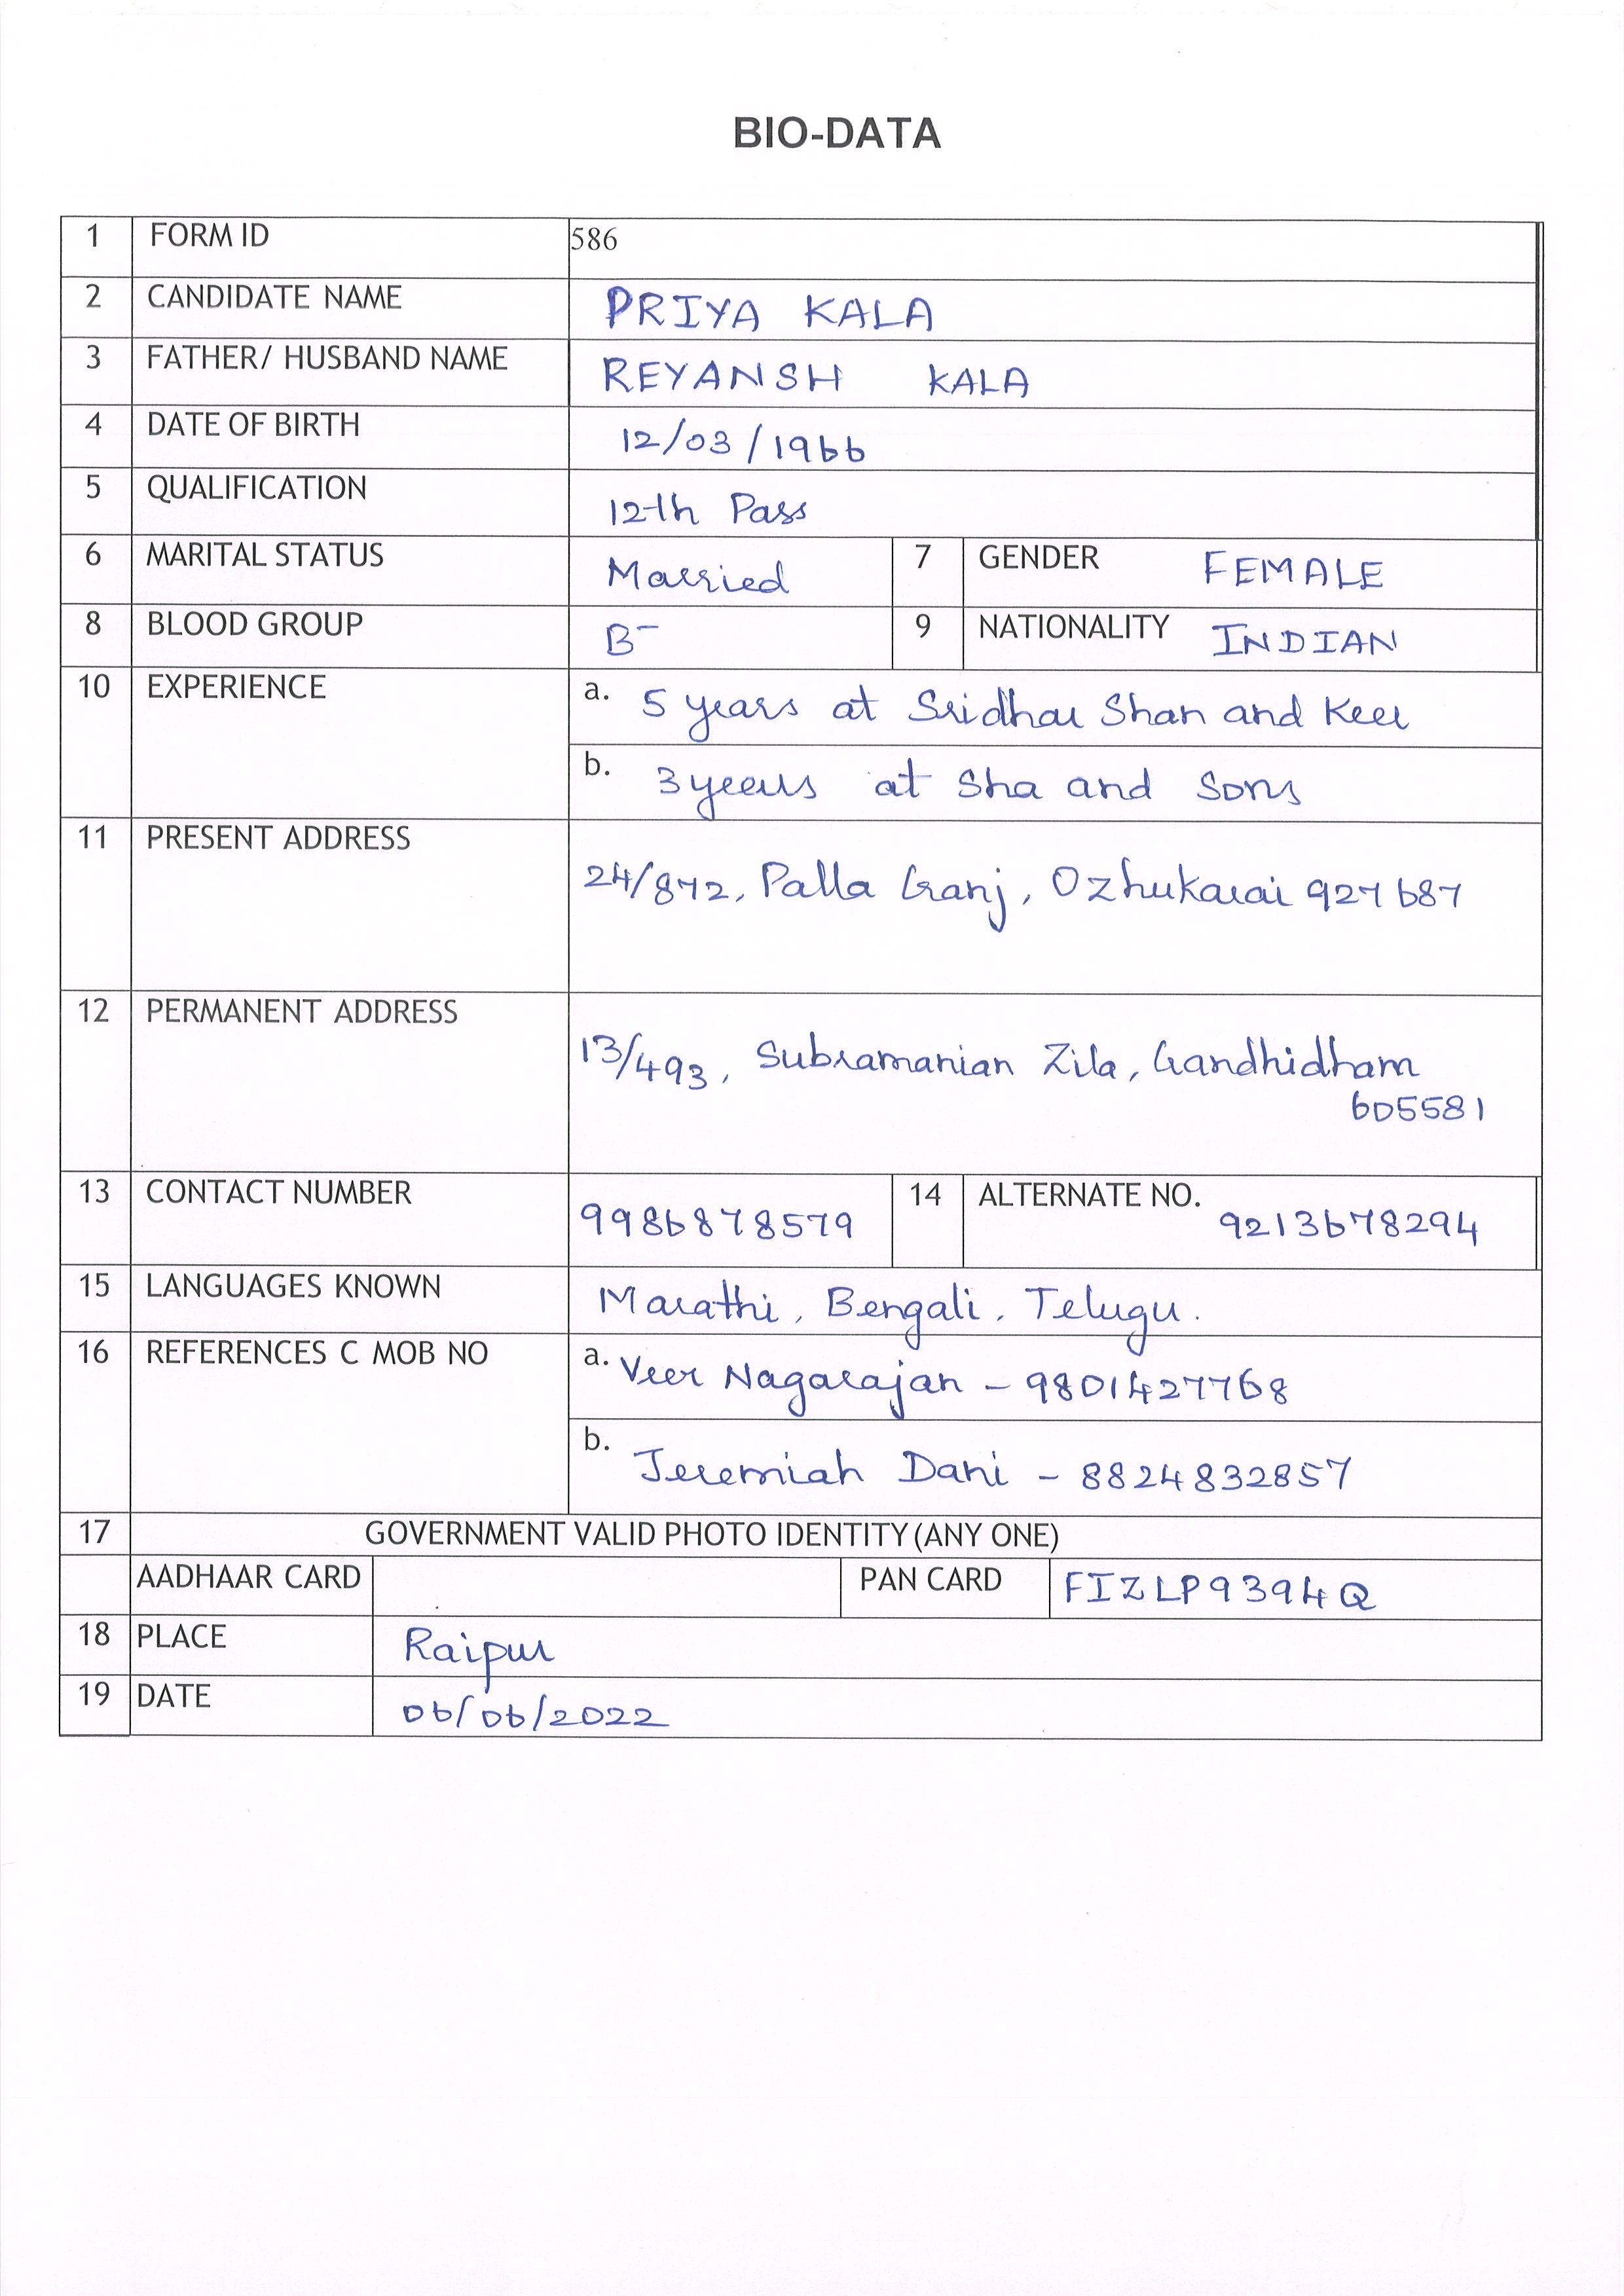 BIO-DATA
1 FORM ID 586
2 CANDIDATE NAME PRIYA KALA
3 FATHER/ HUSBAND NAME REYANSH KALA
4 DATE OF BIRTH 12/03/1966
5 QUALIFICATION 12th Pass
6 MARITAL STATUS Married 7 GENDER FEMALE
8 BLOOD GROUP B- 9 NATIONALITY INDIAN
10 EXPERIENCE a. 5 years at Sridhar Shan and Keer
b. 3 years at Sha and Sons
11 PRESENT ADDRESS
24/872, Palla Ganj, Ozhukarai 927687
12 PERMANENT ADDRESS
13/493, Subramanian Zila, Gandhidham
605581
13 CONTACT NUMBER 9986878579 14 ALTERNATE NO. 9213678294
15 LANGUAGES KNOWN Marathi, Bengali, Telugu.
16 REFERENCES C MOB NO a. Veer Nagarajan - 9801427768
b. Jeremiah Dani - 8824832857
17 GOVERNMENT VALID PHOTO IDENTITY (ANY ONE)
AADHAAR CARD PAN CARD FIZLP9394Q
18 PLACE Raipur
19 DATE 06/06/2022